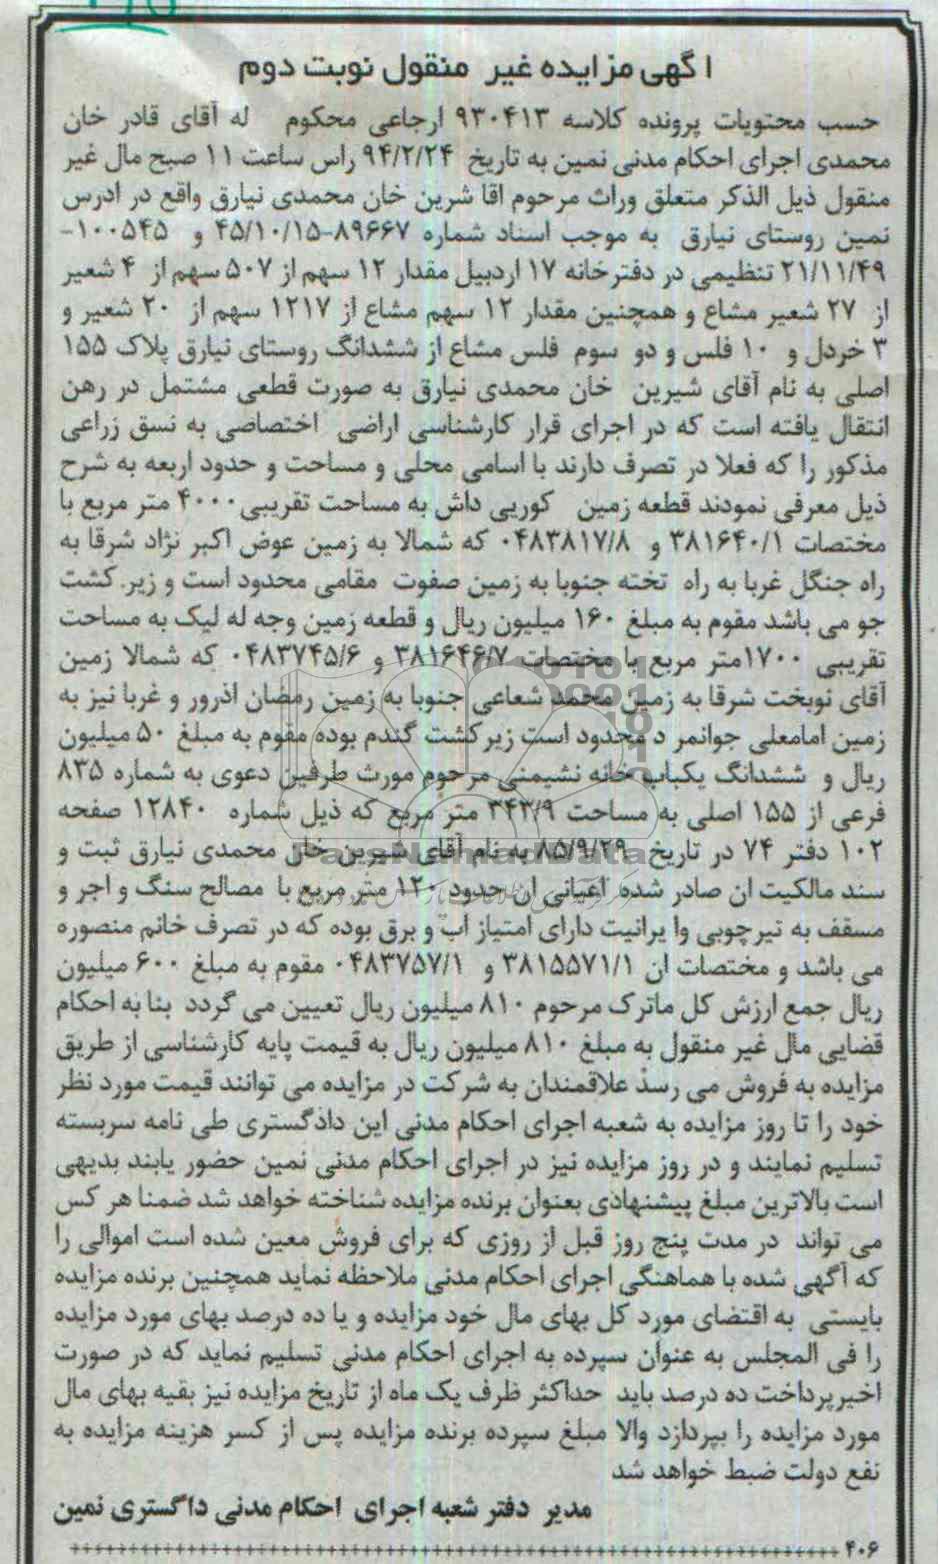 اگهی مزایده غیر منقول نوبت دوم
حسب محتویات پرونده کلاسه ۹۳۰۴۱۳ ارجاعی محکوم له آقای قادر خان
محمدی اجرای احکام مدنی نمین به تاریخ ۹۴/۲/۲۴ راس ساعت ۱۱ صبح مال غیر
منقول ذیل الذکر متعلق وراث مرحوم اقا شرین خان محمدی نیارق واقع در ادرس
نمین روستای نیارق به موجب اسناد شماره ۸۹۶۶۷-۴۵/۱۰/۱۵ و ۱۰۰۵۴۵-
۲۱/۱۱/۴۹ تنظیمی در دفترخانه ۱۷ اردبیل مقدار ۱۲ سهم از ۵۰۷ سهم از ۴ شعیر
از ۲۷ شعیر مشاع و همچنین مقدار ۱۲ سهم مشاع از ۱۲۱۷ سهم از ۲۰ شعیر و
۳ خردل و ۱۰ فلس و دو سوم فلس مشاع از ششدانگ روستای نیارق پلاک ۱۵۵
اصلی به نام آقای شیرین خان محمدی نیارق به صورت قطعی مشتمل در رهن
انتقال یافته است که در اجرای قرار کارشناسی اراضی اختصاصی به نسق زراعی
مذکور را که فعلا در تصرف دارند با اسامی محلی و مساحت و حدود اربعه به شرح
ذیل معرفی نمودند قطعه زمین کوریی داش به مساحت تقریبی ۴۰۰۰ متر مربع با
مختصات ۳۸۱۶۴۰/۱ و ۰۴۸۳۸۱۷/۸ که شمالا به زمین عوض اکبر نژاد شرقا به
راه جنگل غربا به راه تخته جنوبا به زمین صفوت مقامی محدود است و زیر کشت
جو می باشد مقوم به مبلغ ۱۶۰ میلیون ریال و قطعه زمین وجه له لیک به مساحت
تقریبی ۱۷۰۰متر مربع با مختصات ۳۸۱۶۴۶/۷ و ۰۴۸۳۷۴۵/۶ که شمالا زمین
آقای نوبخت شرقا به زمین محمد شعاعی جنوبا به زمین رمضان اذرور و غربا نیز به
زمین امامعلی جوانمر د محدود است زیرکشت گندم بوده مقوم به مبلغ ۵۰ میلیون
ریال و ششدانگ یکباب خانه نشیمنی مرحوم مورث طرفین دعوی به شماره ۸۳۵
فرعی از ۱۵۵ اصلی به مساحت ۳۴۳/۹ متر مربع که ذیل شماره ۱۲۸۴۰ صفحه
۱۰۲ دفتر ۷۴ در تاریخ ۸۵/۹/۲۹ به نام آقای شیرین خان محمدی نیارق ثبت و
سند مالکیت ان صادر شده اعیانی ان حدود ۱۲۰ متر مربع با مصالح سنگ و اجر و
مسقف به تیرچوبی وا یرانیت دارای امتیاز اب و برق بوده که در تصرف خانم منصوره
می باشد و مختصات ان ۳۸۱۵۵۷۱/۱ و ۰۴۸۳۷۵۷/۱ مقوم به مبلغ ۶۰۰ میلیون
ریال جمع ارزش کل ماترک مرحوم ۸۱۰ میلیون ریال تعیین می گردد بنا به احکام
قضایی مال غیر منقول به مبلغ ۸۱۰ میلیون ریال به قیمت پایه کارشناسی از طریق
مزایده به فروش می رسد علاقمندان به شرکت در مزایده می توانند قیمت مورد نظر
خود را تا روز مزایده به شعبه اجرای احکام مدنی این دادگستری طی نامه سربسته
تسلیم نمایند و در روز مزایده نیز در اجرای احکام مدنی نمین حضور یابند بدیهی
است بالاترین مبلغ پیشنهادی بعنوان برنده مزایده شناخته خواهد شد ضمنا هر کس
می تواند در مدت پنج روز قبل از روزی که برای فروش معین شده است اموالی را
که آگهی شده با هماهنگی اجرای احکام مدنی ملاحظه نماید همچنین برنده مزایده
بایستی به اقتضای مورد کل بهای مال خود مزایده و یا ده درصد بهای مورد مزایده
را فی المجلس به عنوان سپرده به اجرای احکام مدنی تسلیم نماید که در صورت
اخیرپرداخت ده درصد باید حداکثر ظرف یک ماه از تاریخ مزایده نیز بقیه بهای مال
مورد مزایده را بپردازد والا مبلغ سپرده برنده مزایده پس از کسر هزینه مزایده به
نفع دولت ضبط خواهد شد
مدیر دفتر شعبه اجرای احکام مدنی داگستری نمین
۴۰۶
ParsNamadData